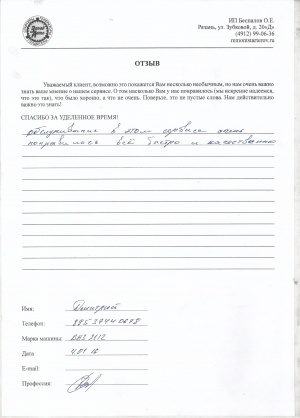 ИП Беспалов О.Е.
Рязань, ул. Зубковой, д. 20«Д»
(4912) 99-06-36
remontstarterov.ru
ОТЗЫВ
Уважаемый клиент, возможно это покажется Вам несколько необычным, но нам очень важно
знать ваше мнение о нашем сервисе. О том насколько Вам у нас понравилось (мы искренне надеемся,
что это так), что было хорошо, а что не очень. Поверьте, это не пустые слова. Нам действительно
важно это знать!
СПАСИБО ЗА УДЕЛЕННОЕ ВРЕМЯ!
обслуживание в этом сервисе очень
понравилось всё быстро и качественно
Имя: Дмитрий
Телефон:
Марка машины: ВАЗ 2112
Дата
E-mail:
Профессия: